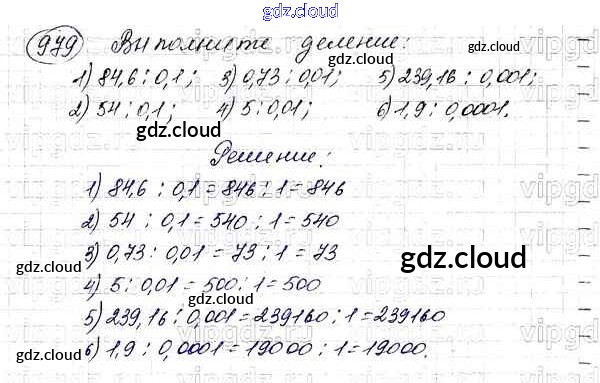 gdz.cloud
979 Выполните деление:
1) 84,6 : 0,1; 3) 0,73 : 0,01; 5) 239,16 : 0,001;
2) 54 : 0,1; 4) 5 : 0,01; 6) 1,9 : 0,0001.
gdz.cloud
Решение:
1) 84,6 : 0,1 = 846 : 1 = 846
2) 54 : 0,1 = 540 : 1 = 540
3) 0,73 : 0,01 = 73 : 1 = 73
gdz.cloud
gdz.cloud
4) 5 : 0,01 = 500 : 1 = 500
5) 239,16 : 0,001 = 239160 : 1 = 239160
gdz.cloud
6) 1,9 : 0,0001 = 19000 : 1 = 19000.
gdz.cloud